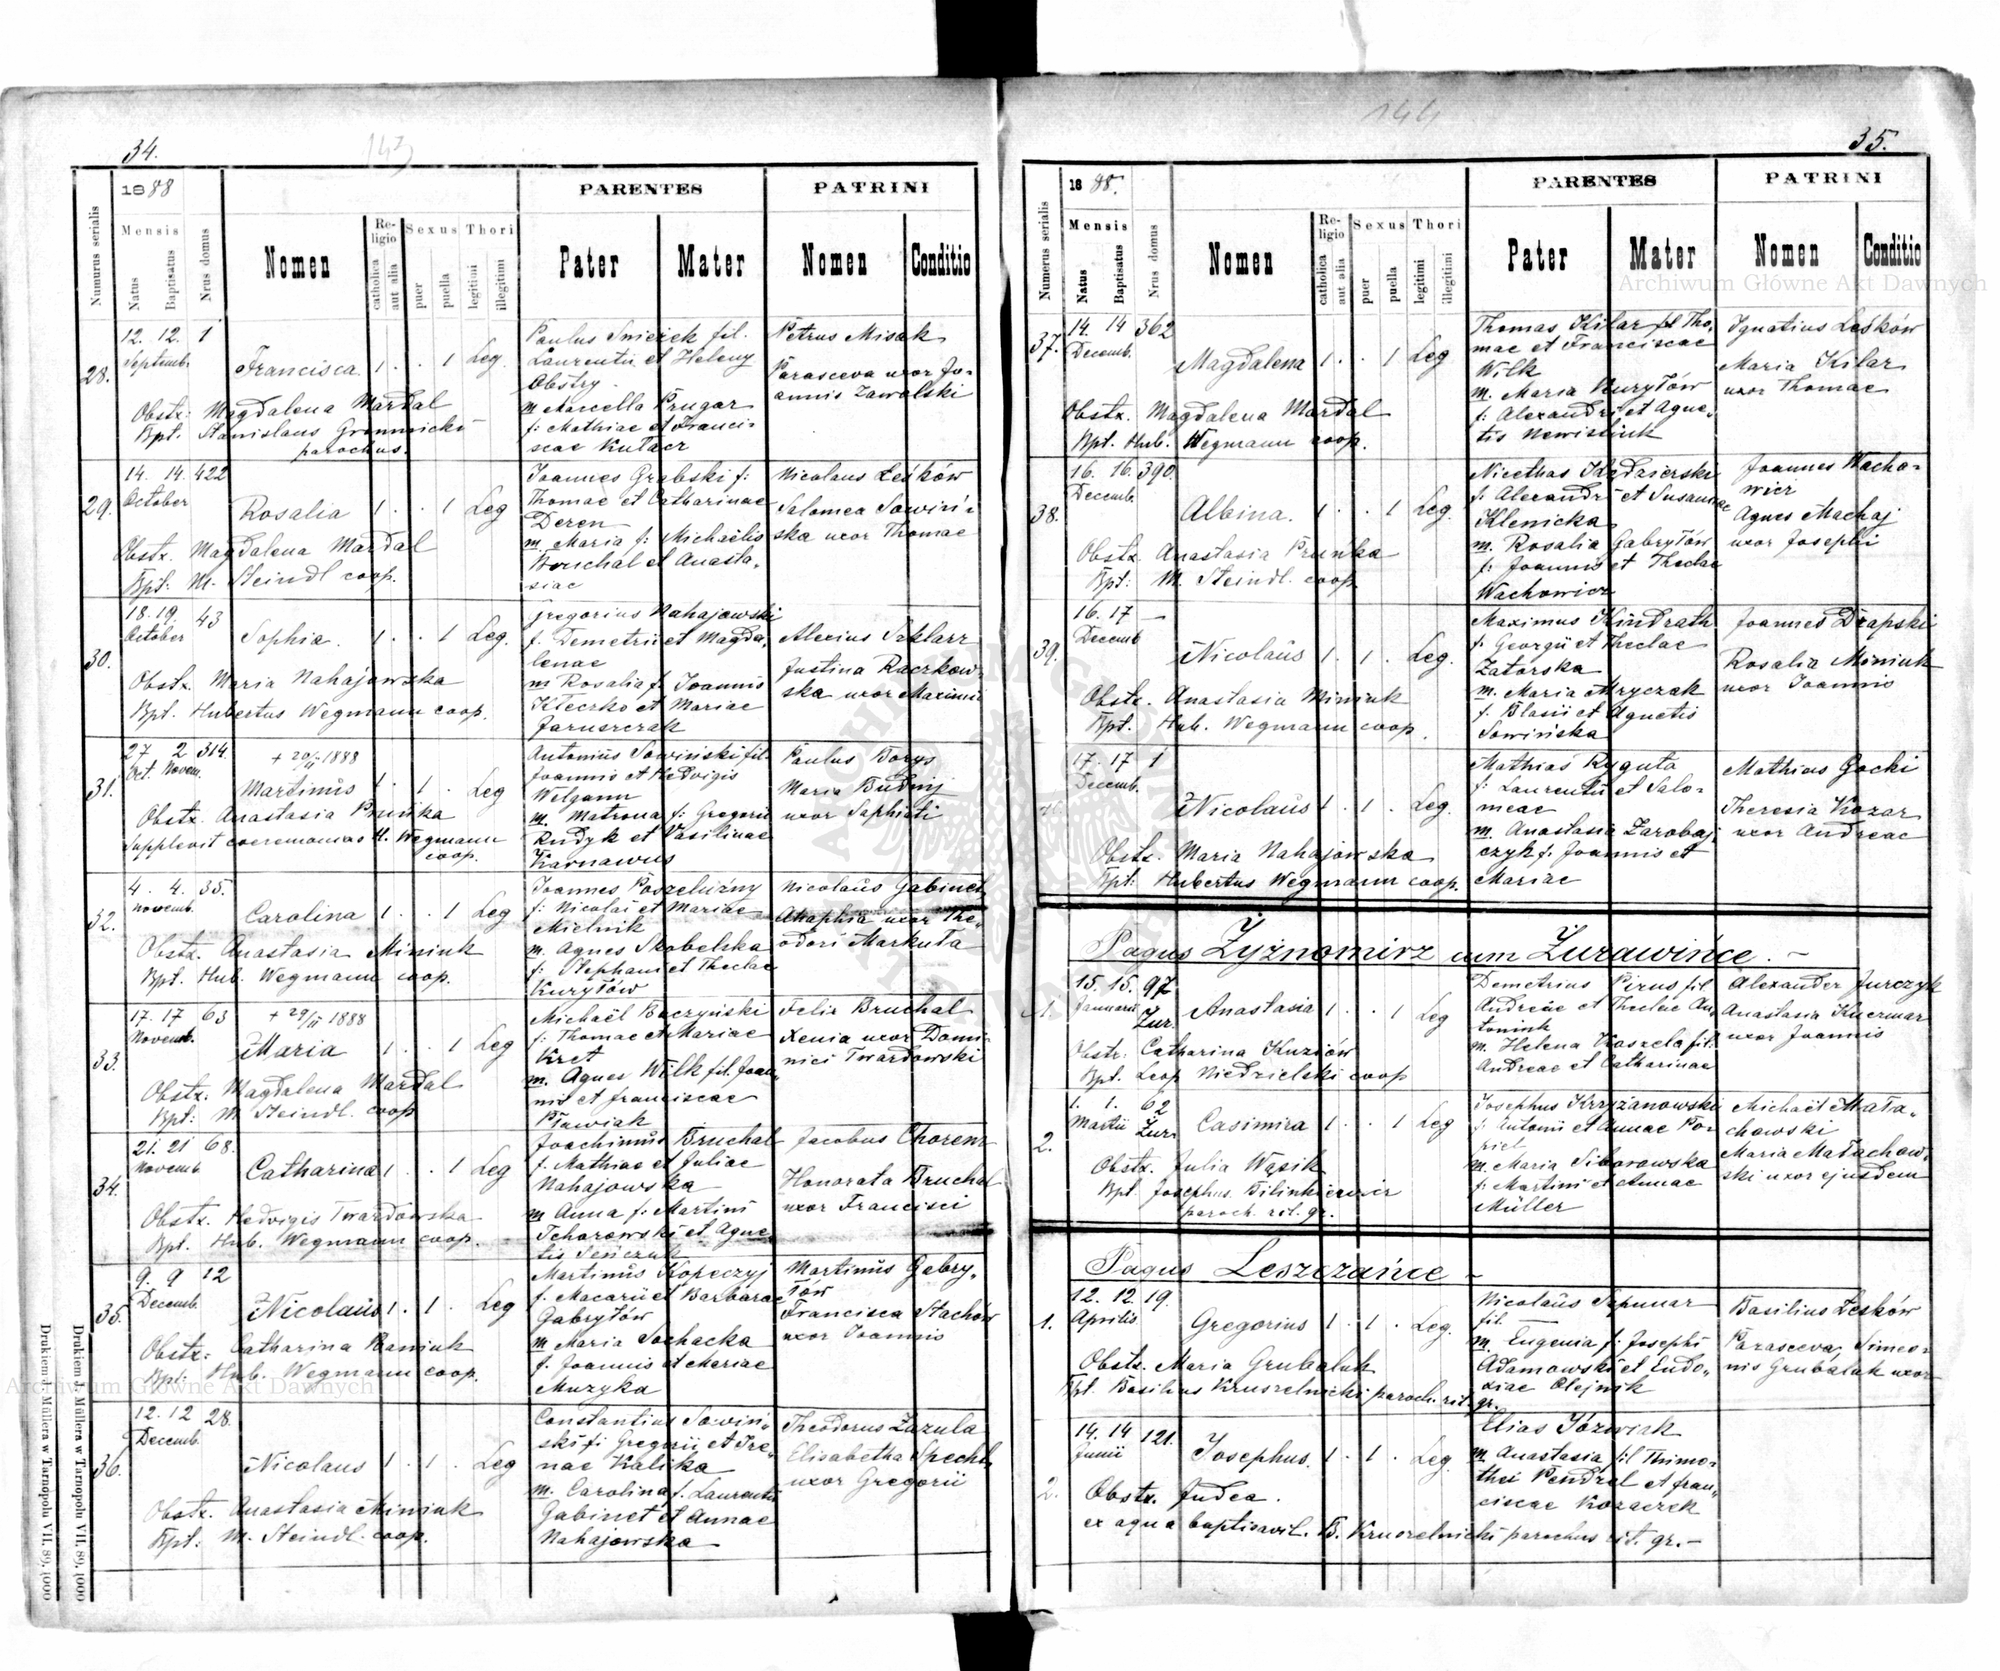 34.
143
1888
PARENTES
PATRINI
Numurus serialis
Mensis
Natus
Baptisatus
Nrus domus
Nomen
Religio
catholica
aut alia
Sexus
puer
puella
Thori
legitimi
illegitimi
Pater
Mater
Nomen
Conditio
28.
12. 12. 1
Septemb.
Francisca 1 . . 1 Leg.
Obstz: Magdalena Mardal
Bpt. Stanislaus Gromnicki
parochus.
Paulus Snieżek fil.
Laurentii et Heleny
Obstry
m Marcella Prugar
f: Mathiae et Franci-
scae Kulacz
Petrus Misak
Parasceva uxor Jo-
annis Zawalski
29.
14. 14. 422
October
Rosalia 1 . . 1 Leg
Obstz. Magdalena Mardal
Bpt: M. Steindl coop.
Joannes Grabski f:
Thomae et Catharinae
Deren
m. Maria f: Michaëlis
Bruchal et Anasta-
siae
Nicolaus Leśków
Salomea Sowiń-
ska uxor Thomae
30.
18. 19. 43
October
Sophia. 1 . . 1 Leg.
Obstz. Maria Nahajowska
Bpt. Hubertus Wegmann coop.
Gregorius Nahajowski
f. Demetrii et Magda-
lenae
m Rosalia f. Joannis
Kleczko et Mariae
Jaruszczak
Alexius Szklarz
Justina Raczkow-
ska uxor Maximi
31.
27 2 314.
Oct. Novem.
+ 20/11 1888
Martinus 1 . 1 . Leg
Obstz. Anastasia Pruńka
Supplevit caeremonias H. Wegmann
coop.
Antonius Sowiński fil.
Joannis et Hedvigis
Welgann
m. Matrona f: Gregorii
Rudyk et Vasilinae
Karnawus
Paulus Borys
Maria Budnij
uxor Saphiati
32.
4. 4. 35.
Novemb.
Carolina 1 . . 1 Leg
Obstz. Anastasia Miniuk
Bpt. Hub. Wegmann coop.
Joannes Poszelużny
f: Nicolai et Mariae
Mielnik
m. Agnes Skobelska
f: Stephani et Theclae
Kuryłów
Nicolaus Gabinet
Ahaphia uxor The-
odori Markuła
33.
17. 17 63
Novemb.
+ 29/11 1888
Maria 1 . . 1 Leg
Obstz. Magdalena Mardal
Bpt: M. Steindl. coop
Michaël Baczyński
f: Thomae et Mariae
Kret
m. Agnes Wilk fil. Joan-
nis et Franciscae
Pławiak
Felix Bruchal
Xenia uxor Domi-
nici Twardowski
34.
21. 21 68.
Novemb.
Catharina 1 . . 1 Leg
Obstz. Hedvigis Twardowska
Bpt. Hub. Wegmann coop.
Joachimus Bruchal
f. Mathiae et Juliae
Nahajowska
m Anna f: Martini
Tchorowski et Agne-
tis Senczuk
Jacobus Chorenz
Honorata Bruchal
uxor Francisci
35.
9. 9 12
Decemb.
Nicolaus 1 . 1 . Leg
Obstz. Catharina Baniuk
Bpt: Hub. Wegmann coop.
Martinus Kopeczyj
f. Macarii et Barbarae
Gabryłów
m Maria Sochacka
f. Joannis et Mariae
Muzyka
Martinus Gabry-
łów
Francisca Stachów
uxor Joannis
36.
12. 12 28.
Decemb.
Nicolaus 1 . 1 . Leg
Obstz. Anastasia Miniuk
Bpt: M. Steindl. coop.
Constantius Sowiń-
ski f: Gregorii et Ire-
nae Kalika
m. Carolina f. Laurentii
Gabinet et Annae
Nahajowska
Theodorus Zazula
Elisabetha Specht
uxor Gregorii
Drukiem J. Müllera w Tarnopolu VII. 89. 1000
Drukiem J. Müllera w Tarnopolu VII. 89. 1000
144
35.
1888.
PARENTES
PATRINI
Numerus serialis
Mensis
Natus
Baptisatus
Nrus domus
Nomen
Religio
catholica
aut alia
Sexus
puer
puella
Thori
legitimi
illegitimi
Pater
Mater
Nomen
Conditio
Archiwum Główne Akt Dawnych
37.
14. 14 362
Decemb.
Magdalena 1 . . 1 Leg
Obstz. Magdalena Mardal
Bpt. Hub. Wegmann coop.
Thomas Kilar fil Tho-
mae et Franciscae
Wilk
m. Maria Kuryłów
f: Alexandri et Agne-
tis Newisliuk
Ignatius Leśków
Maria Kilar
uxor Thomae
38.
16. 16. 390.
Decemb.
Albina. 1 . . 1 Leg.
Obstz. Anastasia Pruńka
Bpt: M. Steindl. coop.
Nicethas Kędzierski
f: Alexandri et Susannae
Klenicka
m. Rosalia Gabryłów
f: Joannis et Theclae
Wachowicz
Joannes Wacho-
wicz
Agnes Machaj
uxor Josephi
39.
16. 17 —
Decemb
Nicolaus 1 . 1 . Leg.
Obstz. Anastasia Miniuk
Bpt. Hub. Wegmann coop.
Maximus Kindrath
f: Georgii et Theclae
Zatorska
m. Maria Mryczak
f. Blasii et Agnetis
Sowińska
Joannes Drapski
Rosalia Miniuk
uxor Joannis
17. 17 1
Decemb.
Nicolaus 1 . 1 . Leg.
Obstz. Maria Nahajowska
Bpt: Hubertus Wegmann coop.
Mathias Ryguła
f: Laurentii et Salo-
meae
m. Anastasia Zarobaj-
czyk f: Joannis et
Mariae
Mathias Gocki
Theresia Kozar
uxor Andreae
Pagus Zyżnomirz cum Zurawińce. —
1.
15. 15. 97
Januarii Zur.
Anastasia 1 . . 1 Leg
Obstz: Catharina Kuziów
Bpt. Leop Niedzielski coop
Demetrius Pirus fil
Andreae et Theclae An-
toniuk
m. Helena Kaszela fil.
Andreae et Catharinae
Alexander Jurczyk
Anastasia Kuczmar
uxor Joannis
2.
1. 1. 62
Martii Zur.
Casimira 1 . . 1 Leg
Obstz. Julia Wąsik
Bpt. Josephus Bilinkiewicz
paroch. rit. gr.
Josephus Krzyżanowski
f. Antonii et Annae Po-
piel
m. Maria Siborowska
f: Martini et Annae
Müller
Michaël Mała-
chowski
Maria Małachow-
ski uxor ejusdem
Pagus Leszczańce —
1.
12. 12. 19.
Aprilis
Gregorius 1 . 1 . Leg.
Obstz. Maria Grubaluk
Bpt. Basilius Kruszelnicki paroch. rit.
gr.
Nicolaus Sapunar
fil. —
m. Eugenia f: Josephi
Adamowski et Eudo-
xiae Olejnik
Basilius Leśków
Parasceva, Simeo-
nis Grubaluk uxor
2.
14. 14 121.
Junii
Josephus. 1 . 1 . Leg.
Obstz. Judea.
ex aqua baptisavit. B. Kruszelnicki parochus rit. gr. —
Elias Józwiak
m. Anastasia fil Thimo-
thei Pendzel et Fran-
ciscae Kozaczek
Archiwum Główne Akt Dawnych